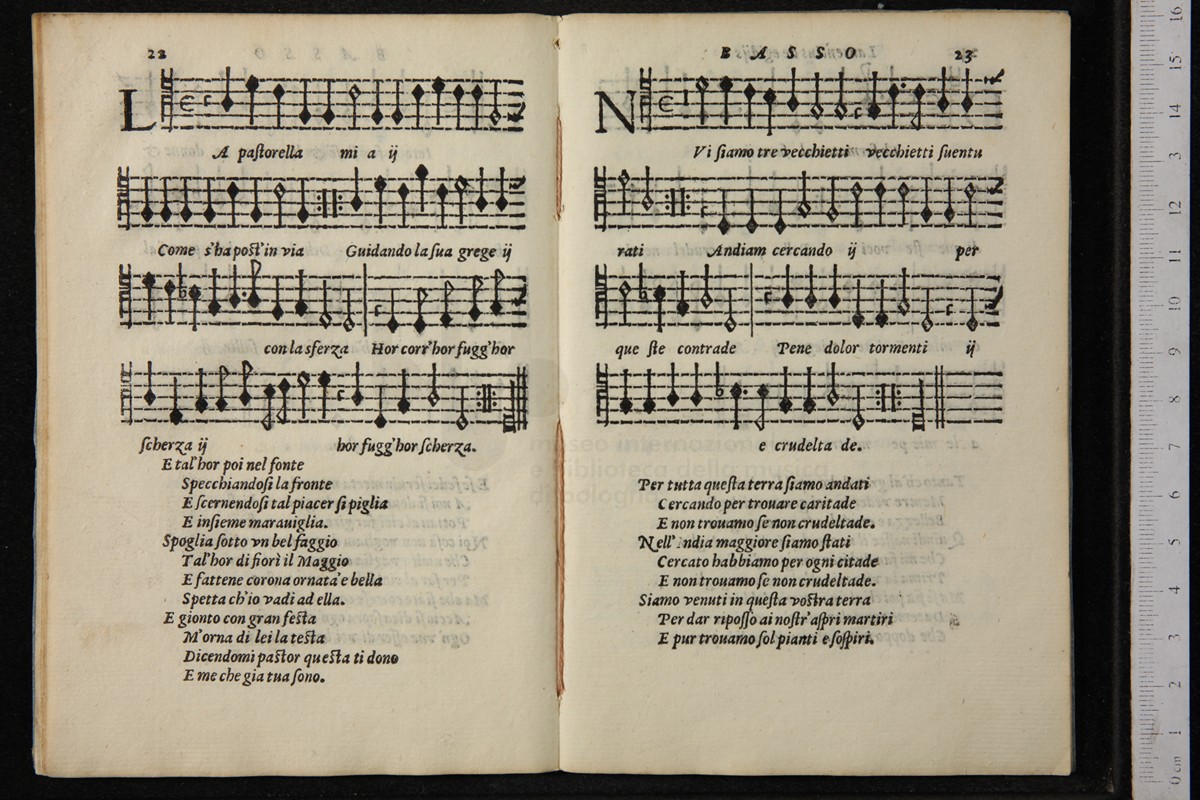 22
L
A pastorella mi a ij
Come s'ha post'in via Guidando la sua grege ij
con la sferza Hor corr'hor fugg'hor
scherza ij hor fugg'hor scherza.
E tal'hor poi nel fonte
Specchiandosi la fronte
E scernendosi tal piacer si piglia
E insieme marauiglia.
Spoglia sotto vn bel faggio
Tal'hor di fiorì il Maggio
E fattene corona ornata'e bella
Spetta ch'io vadi ad ella.
E gionto con gran festa
M'orna di lei la testa
Dicendomi pastor questa ti dono
E me che gia tua sono.
BASSO 23
N
Vi siamo tre vecchietti vecchietti suentu
rati Andiam cercando ij per
que ste contrade Pene dolor tormenti ij
e crudelta de.
Per tutta questa terra siamo andati
Cercando per trouare caritade
E non trouamo se non crudeltade.
Nell' India maggiore siamo stati
Cercato habbiamo per ogni citade
E non trouamo se non crudeltade.
Siamo venuti in questa vostra terra
Per dar riposso ai nostr'aspri martiri
E pur trouamo sol pianti e sospiri.
museo internazionale
e biblioteca della musica
di bologna
0 cm 1 2 3 4 5 6 7 8 9 10 11 12 13 14 15 16